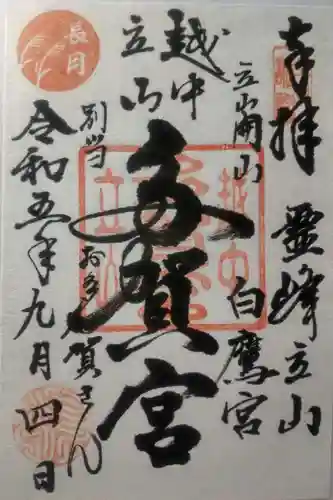 奉拝
霊峰立山
立山開山
白鷹宮
越中
立山
多賀宮
別当
お多賀さん
令和五年九月四日
長月